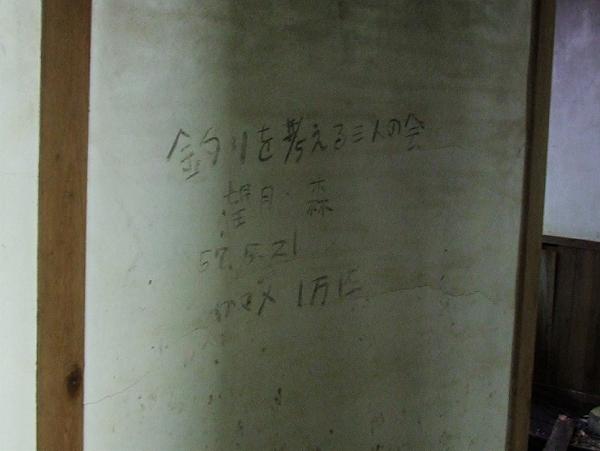 釣りを考える三人の会
望月・森
57.5.21
1万匹